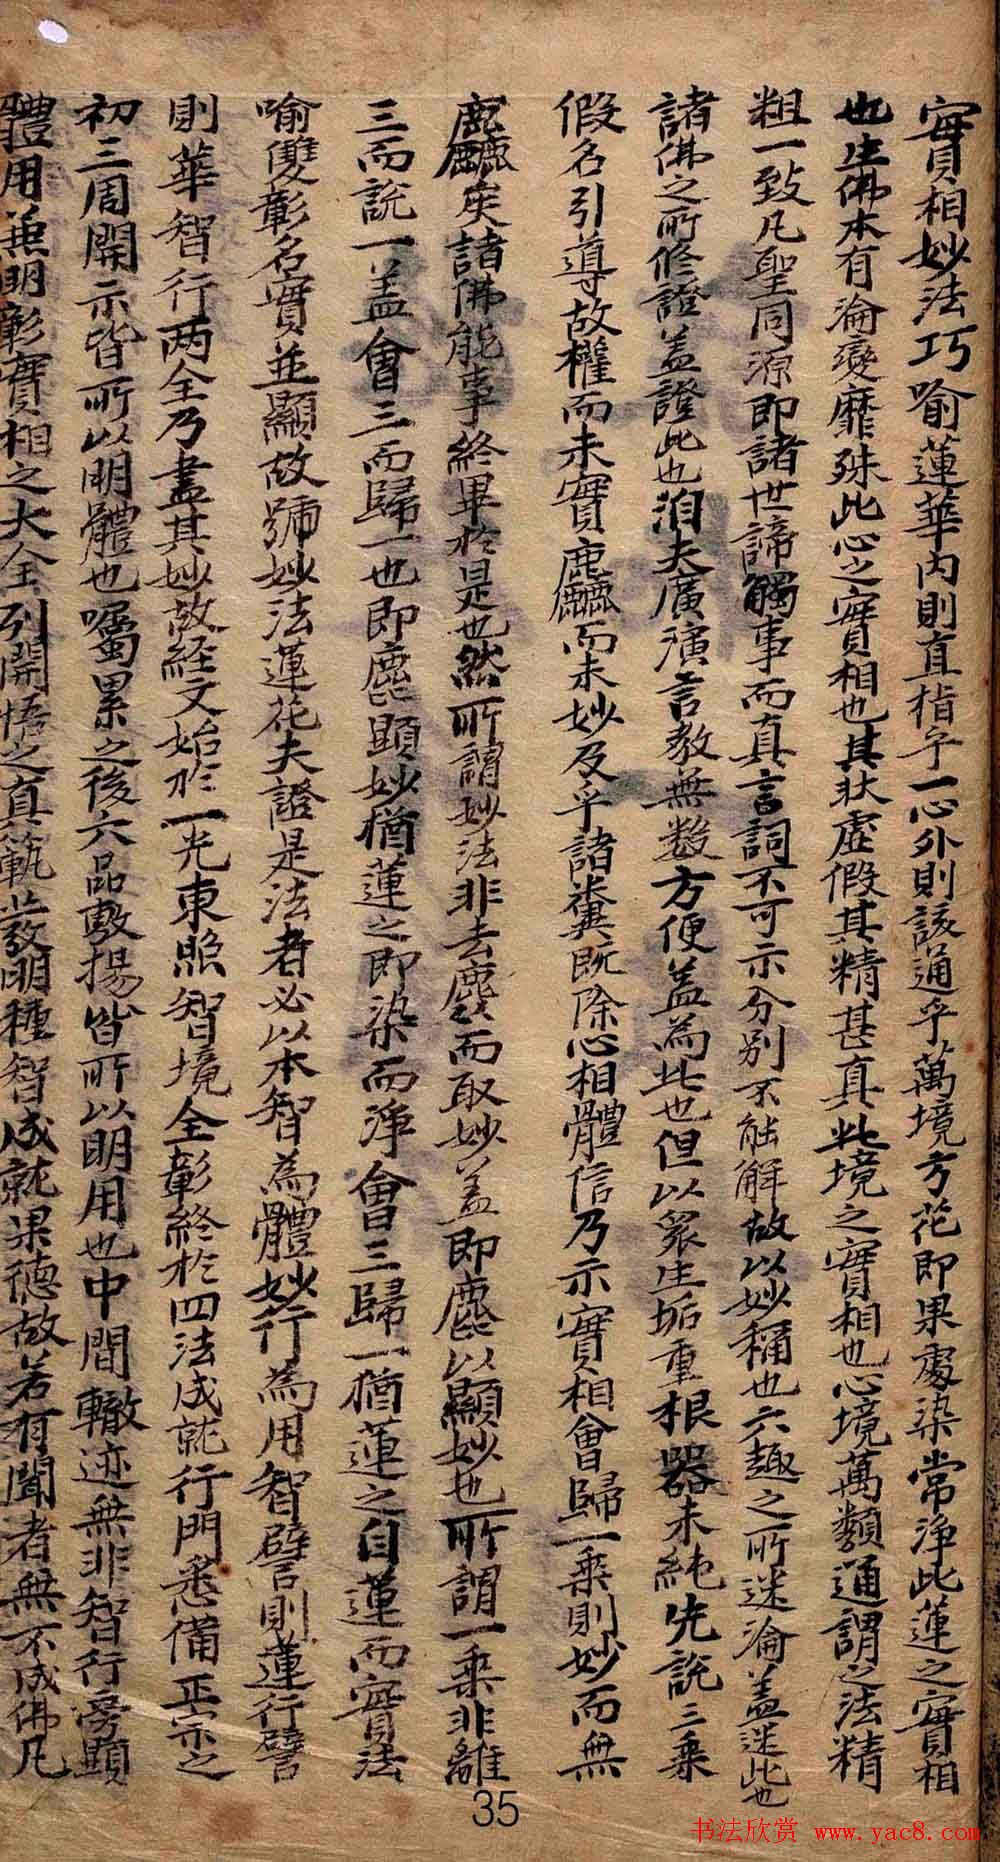 實相妙法巧喻蓮華内則直指乎一心外則該通乎萬境方花即果處染常淨此蓮之實相
也生佛本有淪變靡殊此心之實相也其狀虛假其精甚真此境之實相也心境萬類通謂之法精
粗一致凡聖同源即諸世諦觸事而真言詞不可示分别不能解故以妙稱也六趣之所迷淪盖迷此也
諸佛之所修證盖證此也洎夫廣演言教無數方便盖為此也但以衆生垢重根器未純先說三乘
假名引導故權而未實麤而未妙及乎諸糞既除心相體信乃示實相會歸一乘則妙而無
麤矣諸佛能事終畢於是也然所謂妙法非去麤而取妙盖即麤以顯妙也所謂一乘非離
三而說一盖會三而歸一也即麤顯妙猶蓮之即染而淨會三歸一猶蓮之自蓮而實法
喻雙彰名實並顯故號妙法蓮花夫證是法者必以本智為體妙行為用智譬則蓮行譬
則華智行两全乃盡其妙故経文始於一光東照智境全彰終於四法成就行門悉備正宗之
初三周開示皆所以明體也囑累之後六品敷揚皆所以明用也中間轍迹無非智行旁顯
體用兼明彰實相之大全列開悟之真䡄發明種智成就果德故若有聞者無不成佛凡
35
书法欣赏 www.yac8.com